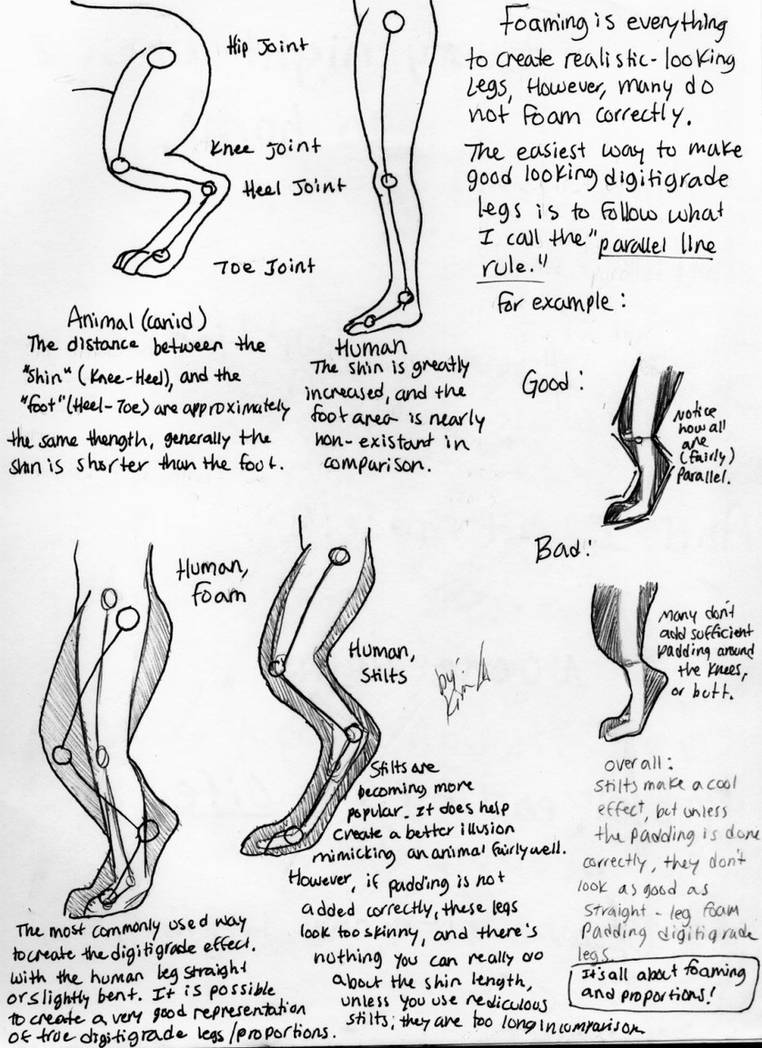 Hip Joint
Knee Joint
Heel Joint
Toe Joint
Animal (canid)
The distance between the
"shin" (Knee-Heel), and the
"foot" (Heel-Toe) are approximately
the same thength, generally the
shin is shorter than the foot.
Human
The shin is greatly
increased, and the
foot area is nearly
non-existant in
comparison.
Foaming is everything
to create realistic-looking
Legs, However, many do
not foam correctly.
The easiest way to make
good looking digitigrade
legs is to follow what
I call the "parallel line
rule."
For example:
Good:
Notice
how all
are
(fairly)
parallel.
Bad:
Many don't
add sufficient
padding around
the knees,
or butt.
Human,
Foam
The most commonly used way
to create the digitigrade effect.
with the human leg straight
or slightly bent. It is possible
to create a very good representation
of true digitigrade legs/proportions.
Human,
Stilts
by:
Stilts are
becoming more
popular. It does help
create a better illusion
mimicking an animal fairly well.
However, if padding is not
added correctly, these legs
look too skinny, and there's
nothing you can really do
about the shin length,
unless you use rediculous
stilts; they are too long in comparison
overall:
Stilts make a cool
effect, but unless
the padding is done
correctly, they don't
look as good as
straight-leg foam
padding digitigrade
legs.
It's all about foaming
and proportions!